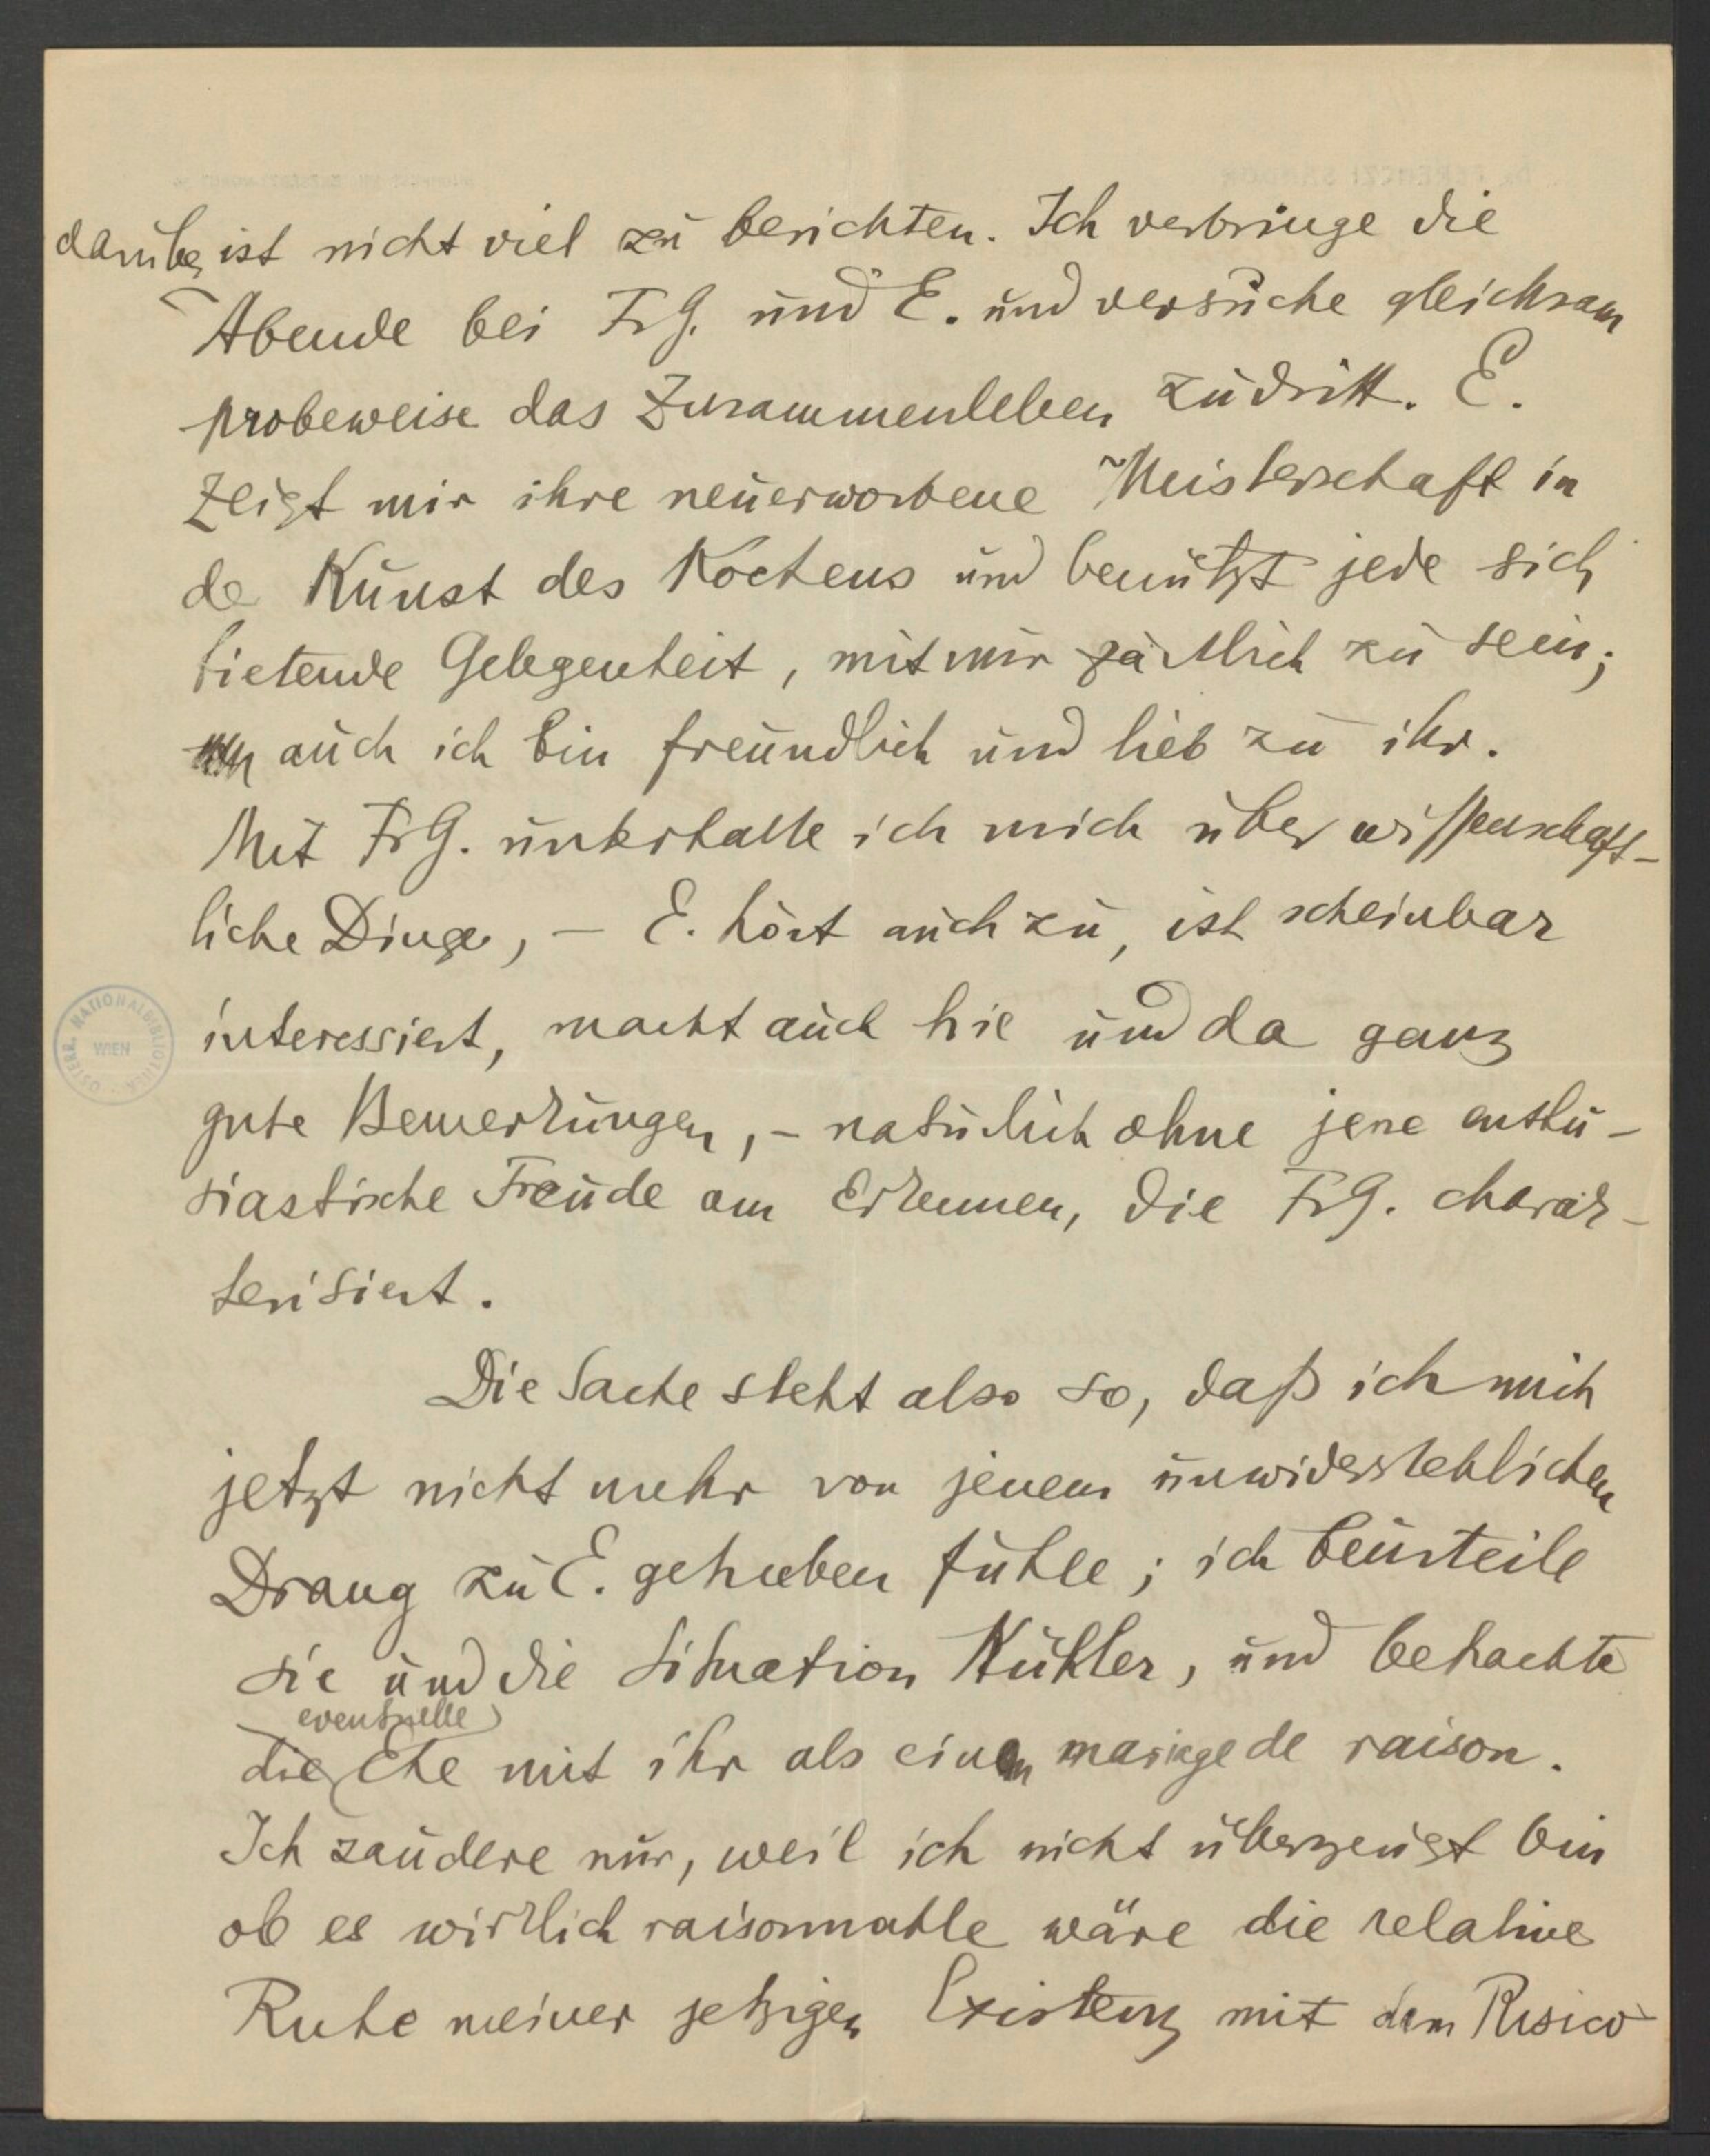 darüber ist nicht viel zu berichten. Ich verbringe die
Abende bei Fr G. und E. und versuche gleichsam
probeweise das Zusammenleben zu dritt. E.
zeigt mir ihre neuerworbene Meisterschaft in
der Kunst des Kochens und benützt jede sich
bietende Gelegenheit, mit mir zärtlich zu sein;
auch ich bin freundlich und lieb zu ihr.
Mit Fr G. unterhalte ich mich über wissenschaft-
liche Dinge, – E. hört auch zu, ist scheinbar
interessiert, macht auch hie und da ganz
gute Bemerkungen, – natürlich ohne jene enthu-
siastische Freude am Erkennen, die Fr G. charak-
terisiert.
Die Sache steht also so, daß ich mich
jetzt nicht mehr von jenem unwiderstehlichen
Drang zu E. getrieben fühle; ich beurteile
sie und die Situation kühler, und betrachte
eventuelle
die Ehe mit ihr als einen mariage de raison.
Ich zaudere nur, weil ich nicht überzeugt bin
ob es wirklich raisonnable wäre die relative
Ruhe meiner jetzigen Existenz mit dem Risico
ÖSTERR. NATIONALBIBLIOTHEK
WIEN